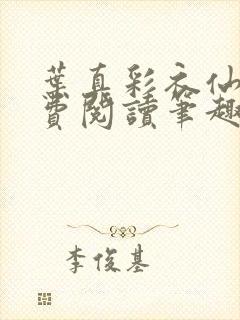 葉真彩衣仙
費閱讀筆趣
李俊基